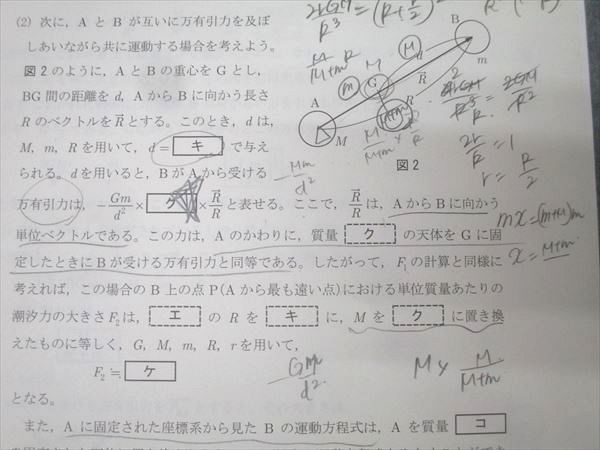 (2) 次に，A と B が互いに万有引力を及ぼ
しあいながら共に運動する場合を考えよう。
図2のように，A と B の重心を G とし，
BG 間の距離を d，A から B に向かう長さ
R のベクトルを R⃗ とする。このとき，d は，
M，m，R を用いて，d＝ キ で与え
られる。d を用いると，B が A から受ける
万有引力は，−Gm/d² × ク × R⃗/R と表せる。ここで，R⃗/R は，A から B に向かう
単位ベクトルである。この力は，A のかわりに，質量 ク の天体を G に固
定したときに B が受ける万有引力と同等である。したがって，F₁ の計算と同様に
考えれば，この場合の B 上の点 P（A から最も遠い点）における単位質量あたりの
潮汐力の大きさ F₂ は， エ の R を キ に，M を ク に置き換
えたものに等しく，G，M，m，R，r を用いて，
F₂ ≒ ケ
となる。
また，A に固定された座標系から見た B の運動方程式は，A を質量 コ
B
m
M
G
m
R⃗
A
M
図2
M/M+m R
−Mm/d²
2r/R = 1
r = R/2
mx = (m+M)m
x = M+m
−Gm/d²
M × M/M+m